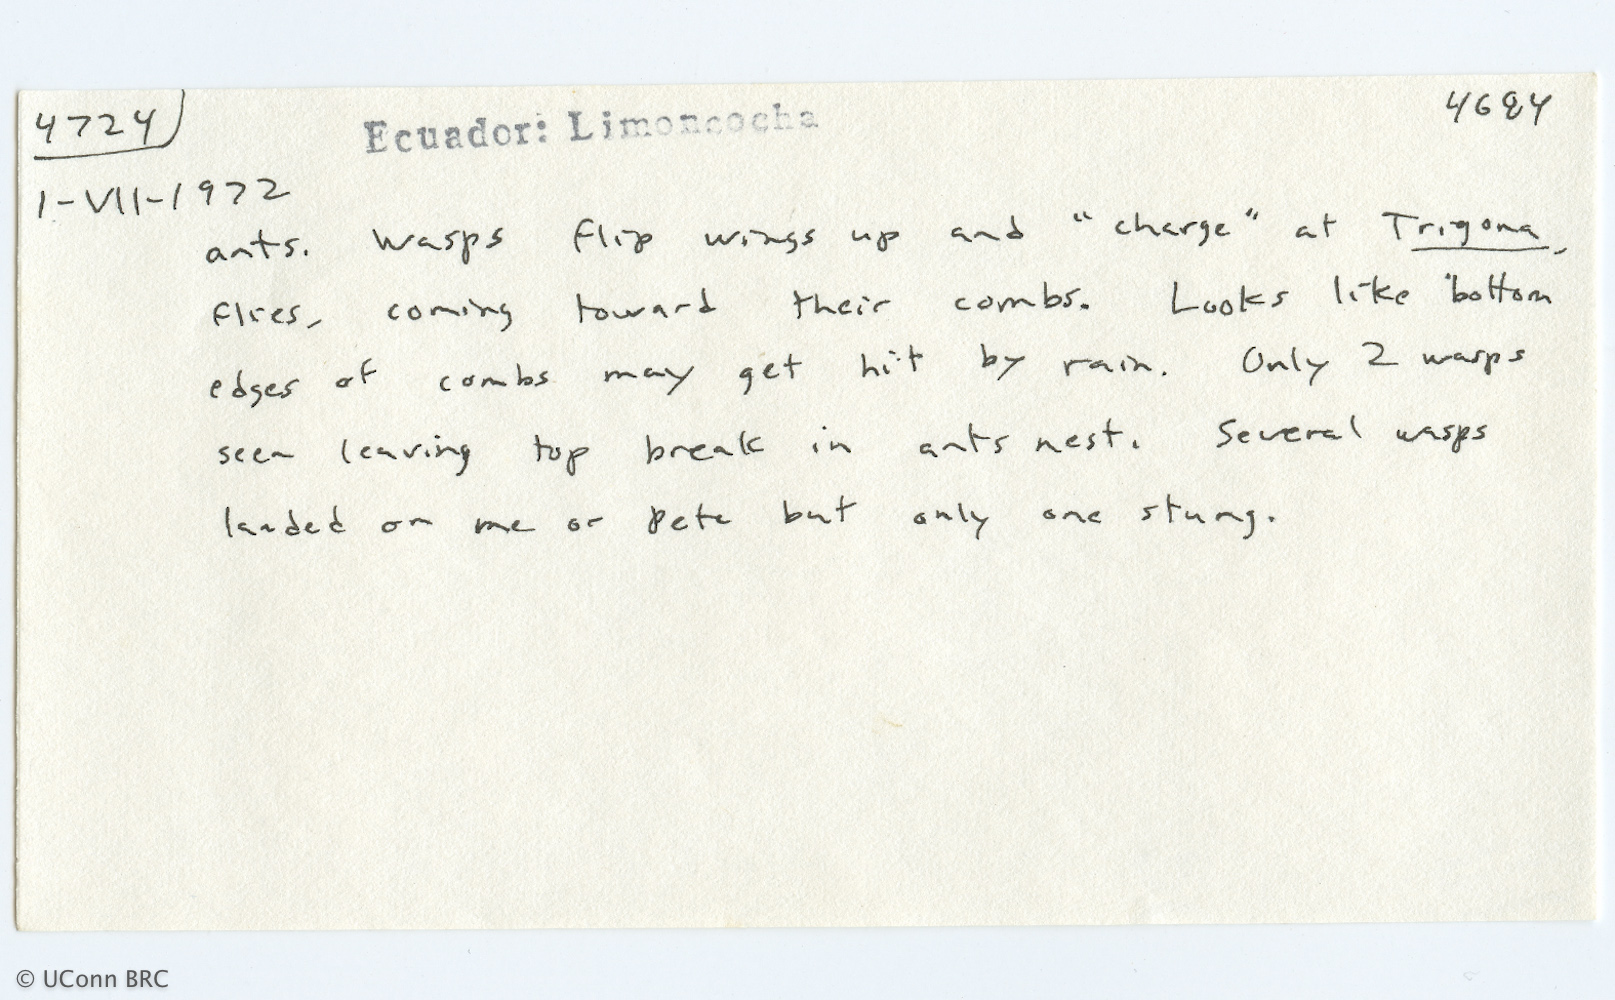 4724
Ecuador: Limoncocha
4684
1-VII-1972
ants. Wasps flip wings up and "charge" at Trigona,
flies, coming toward their combs. Looks like bottom
edges of combs may get hit by rain. Only 2 wasps
seen leaving top break in ants nest. Several wasps
landed on me or Pete but only one stung.
© UConn BRC